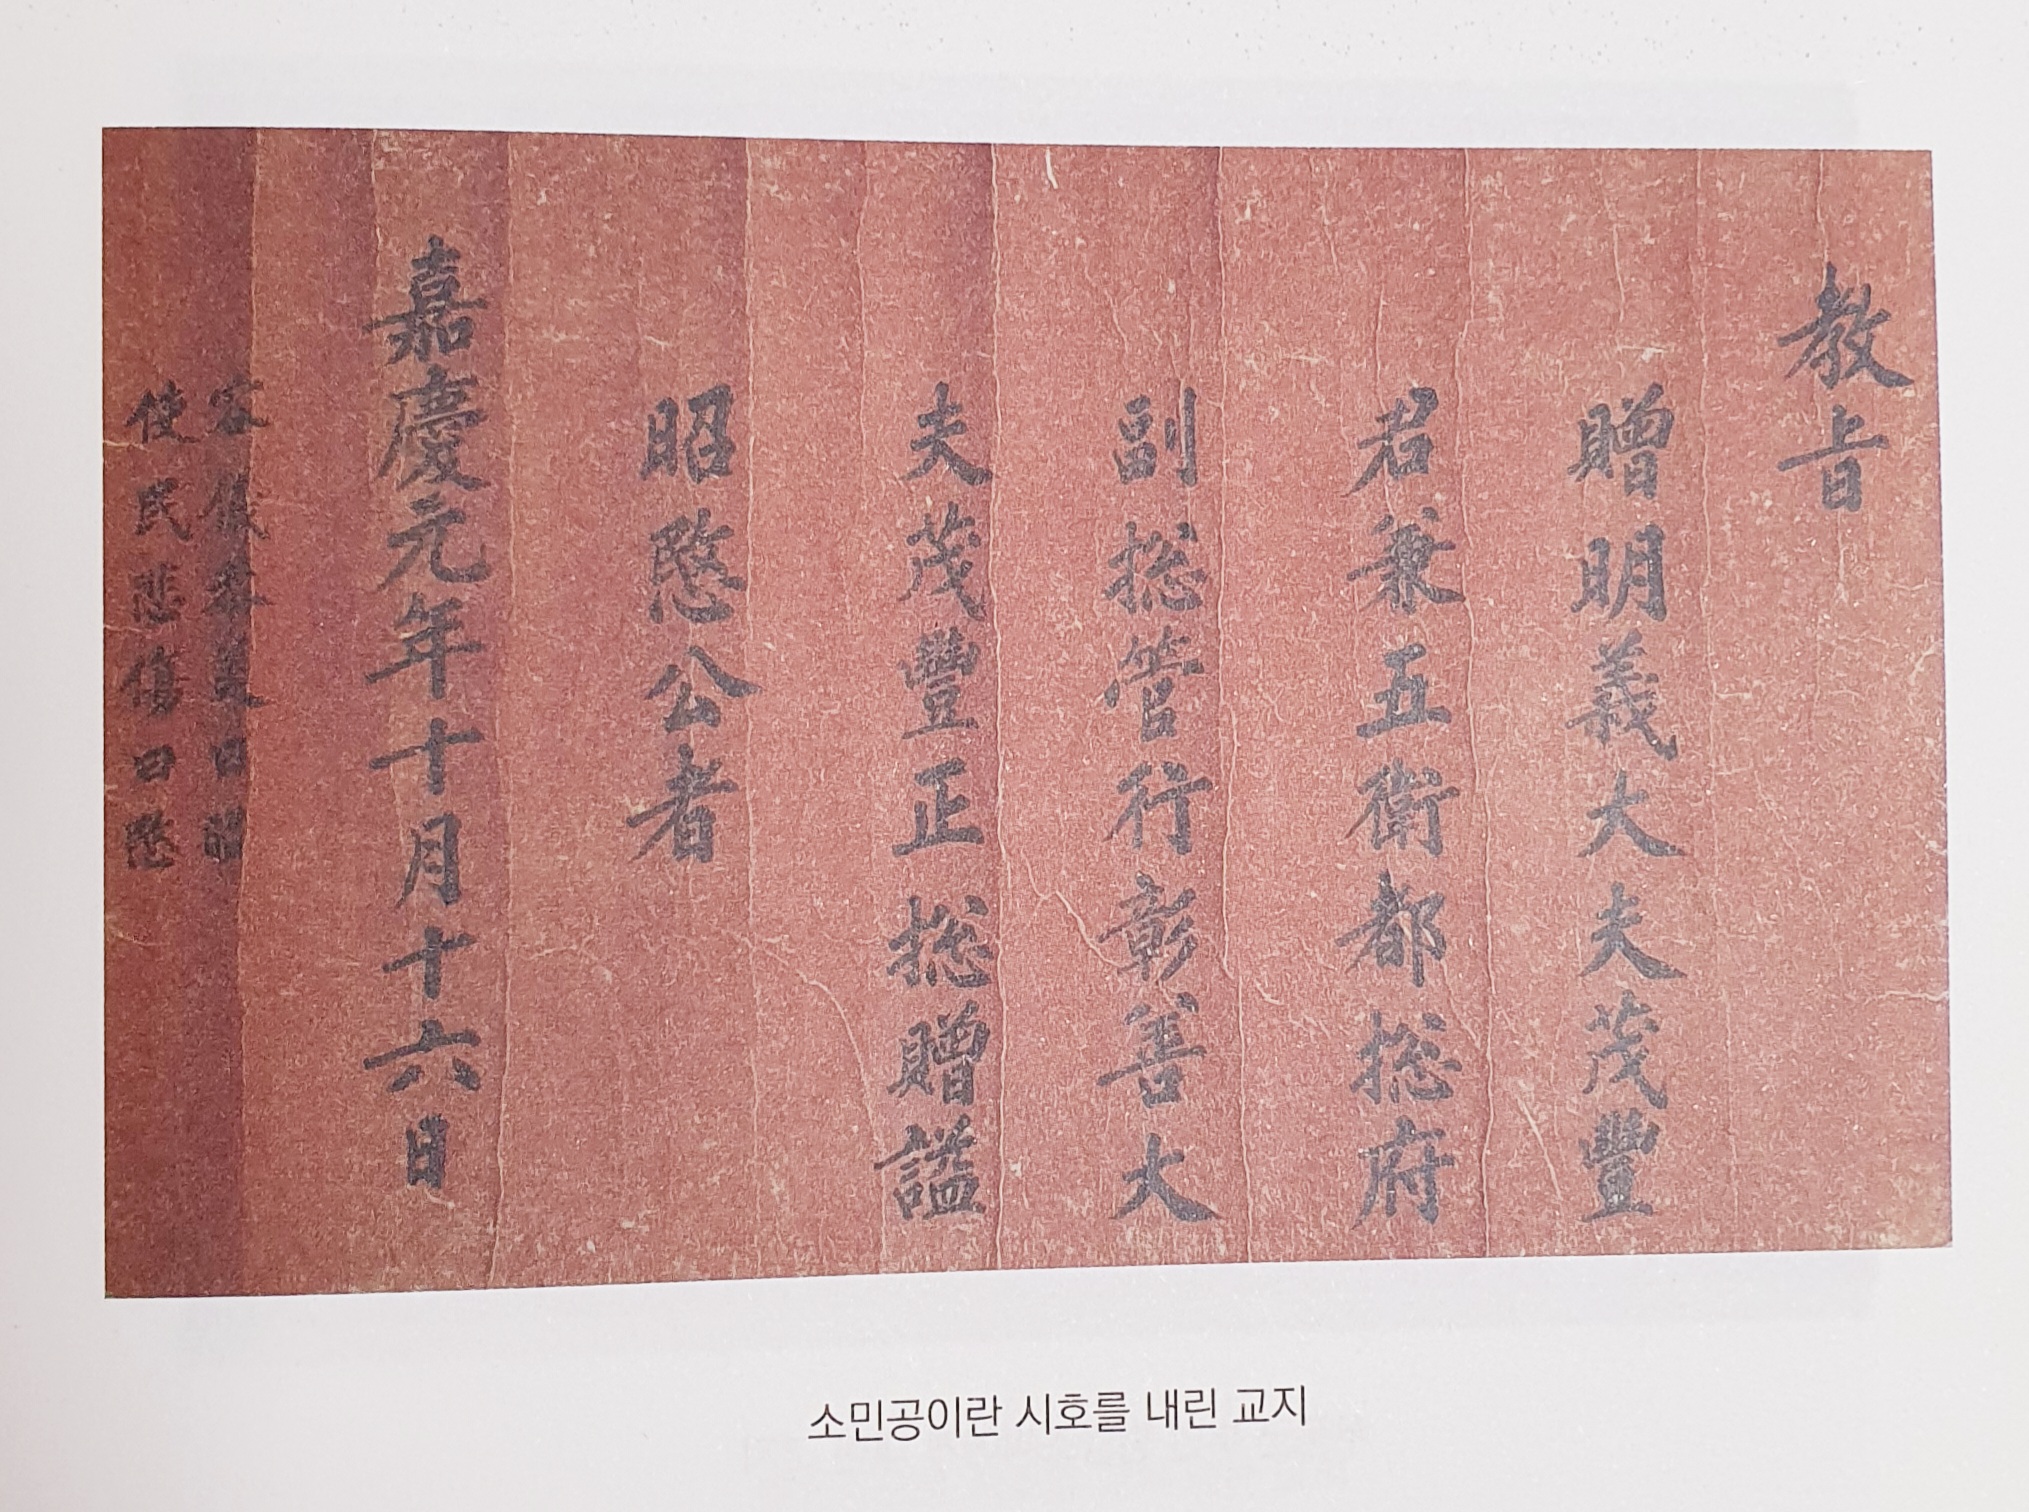 敎旨
贈明義大夫茂豐
君兼五衛都摠府
副摠管行彰善大
夫茂豐正摠贈謚
昭愍公者
嘉慶元年十月十六日
容儀恭美曰昭
使民悲傷曰愍
소민공이란 시호를 내린 교지